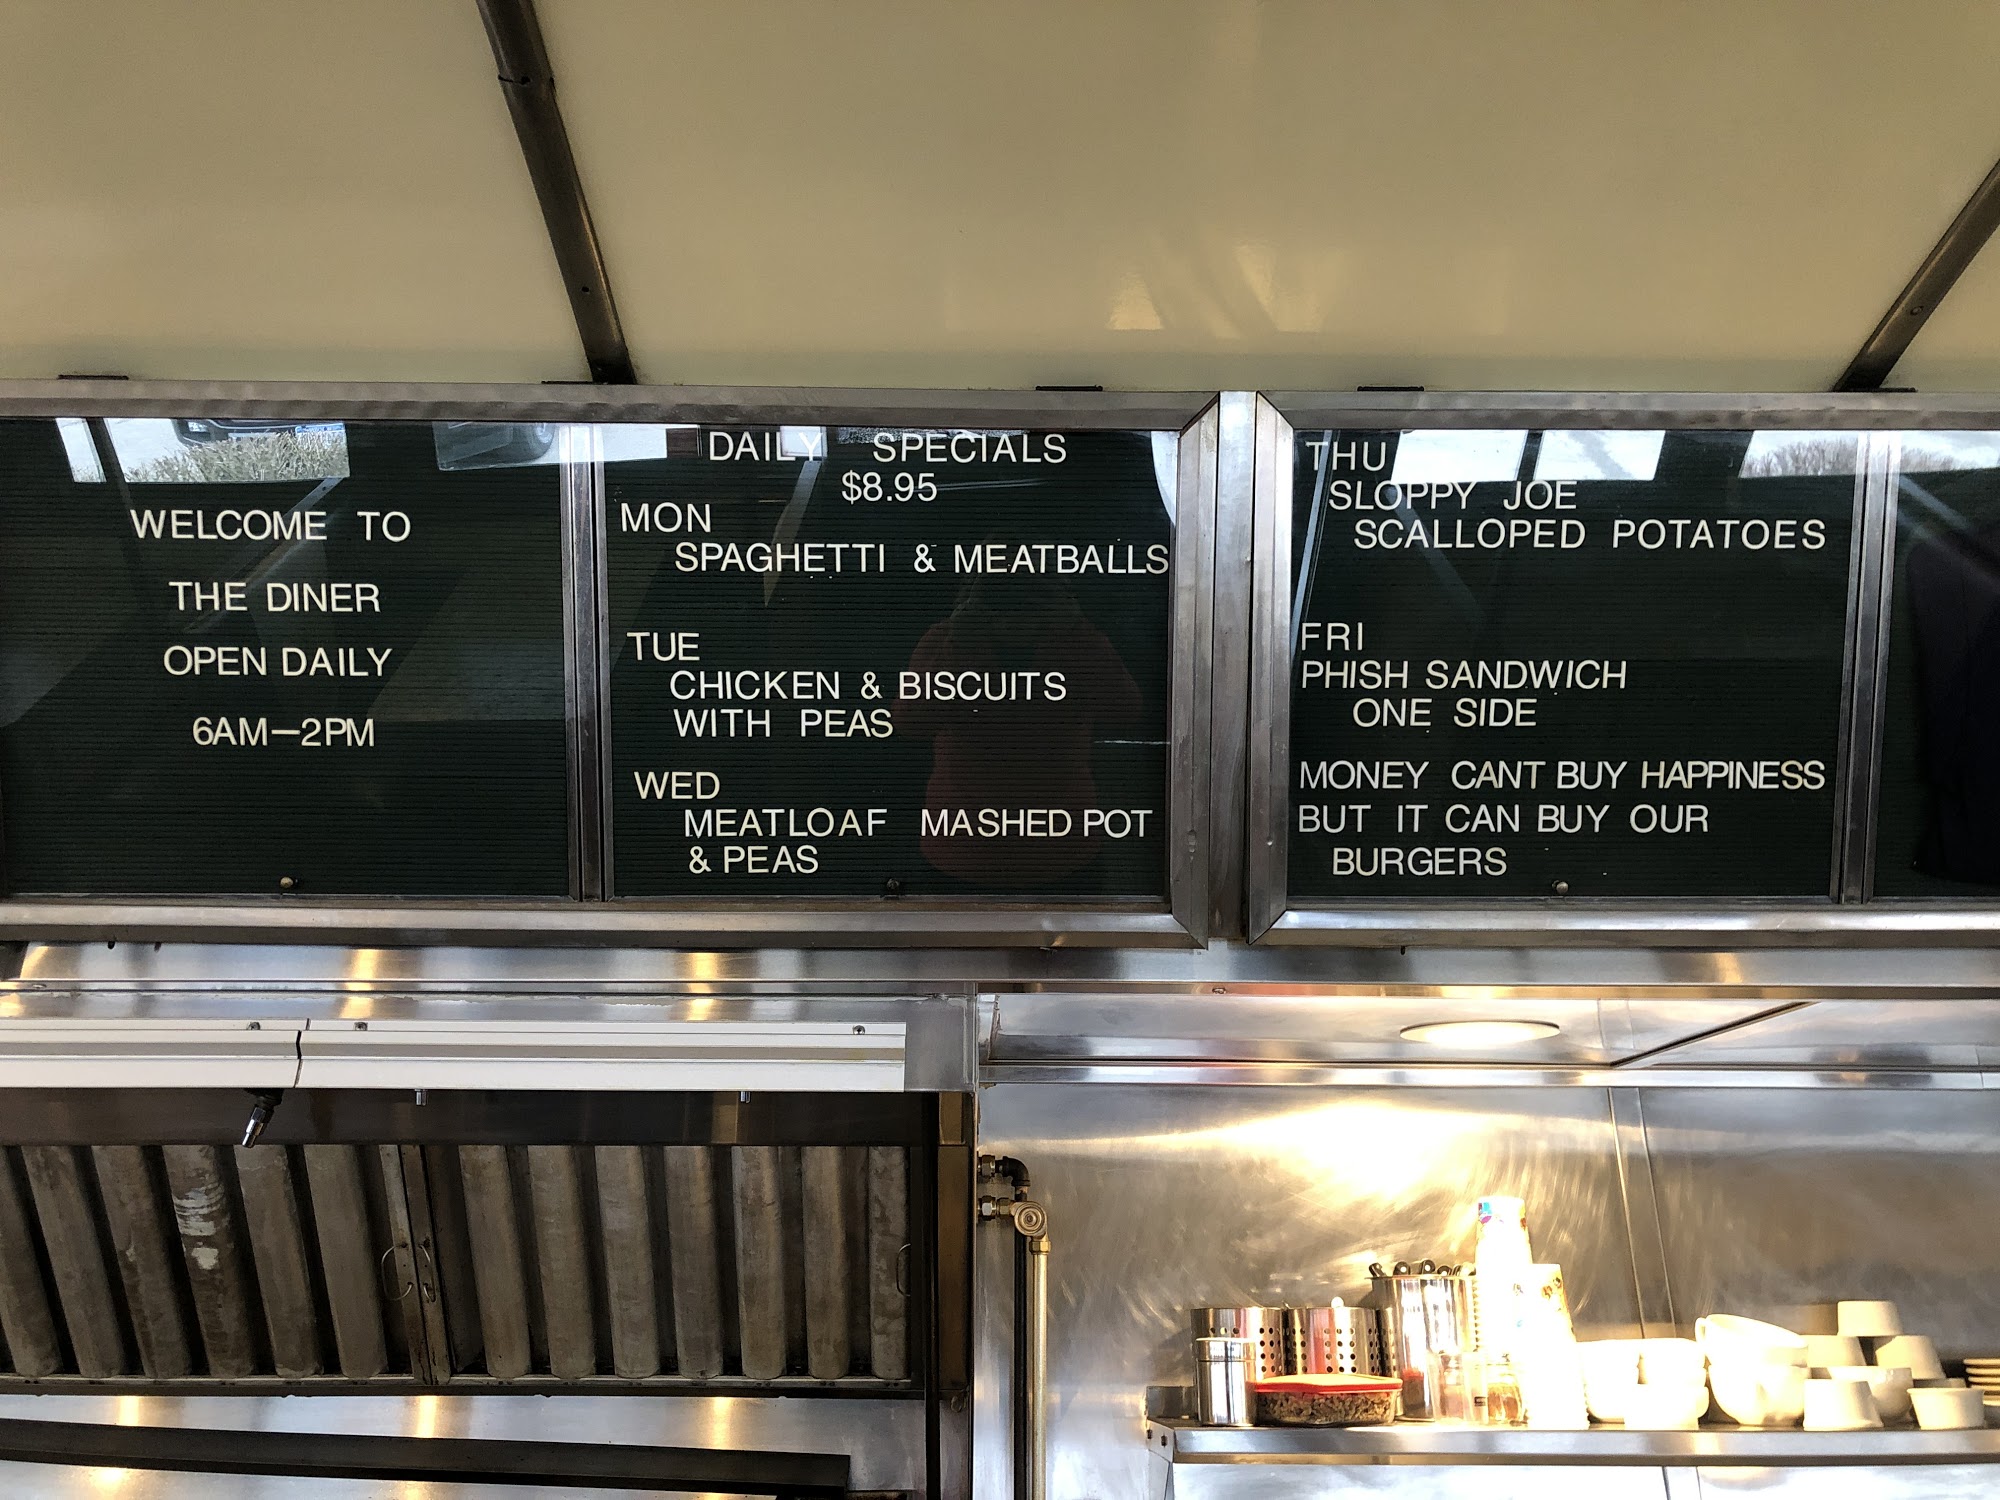 WELCOME TO
THE DINER
OPEN DAILY
6AM—2PM
DAILY SPECIALS
$8.95
MON
SPAGHETTI & MEATBALLS
TUE
CHICKEN & BISCUITS
WITH PEAS
WED
MEATLOAF MASHED POT
& PEAS
THU
SLOPPY JOE
SCALLOPED POTATOES
FRI
PHISH SANDWICH
ONE SIDE
MONEY CANT BUY HAPPINESS
BUT IT CAN BUY OUR
BURGERS